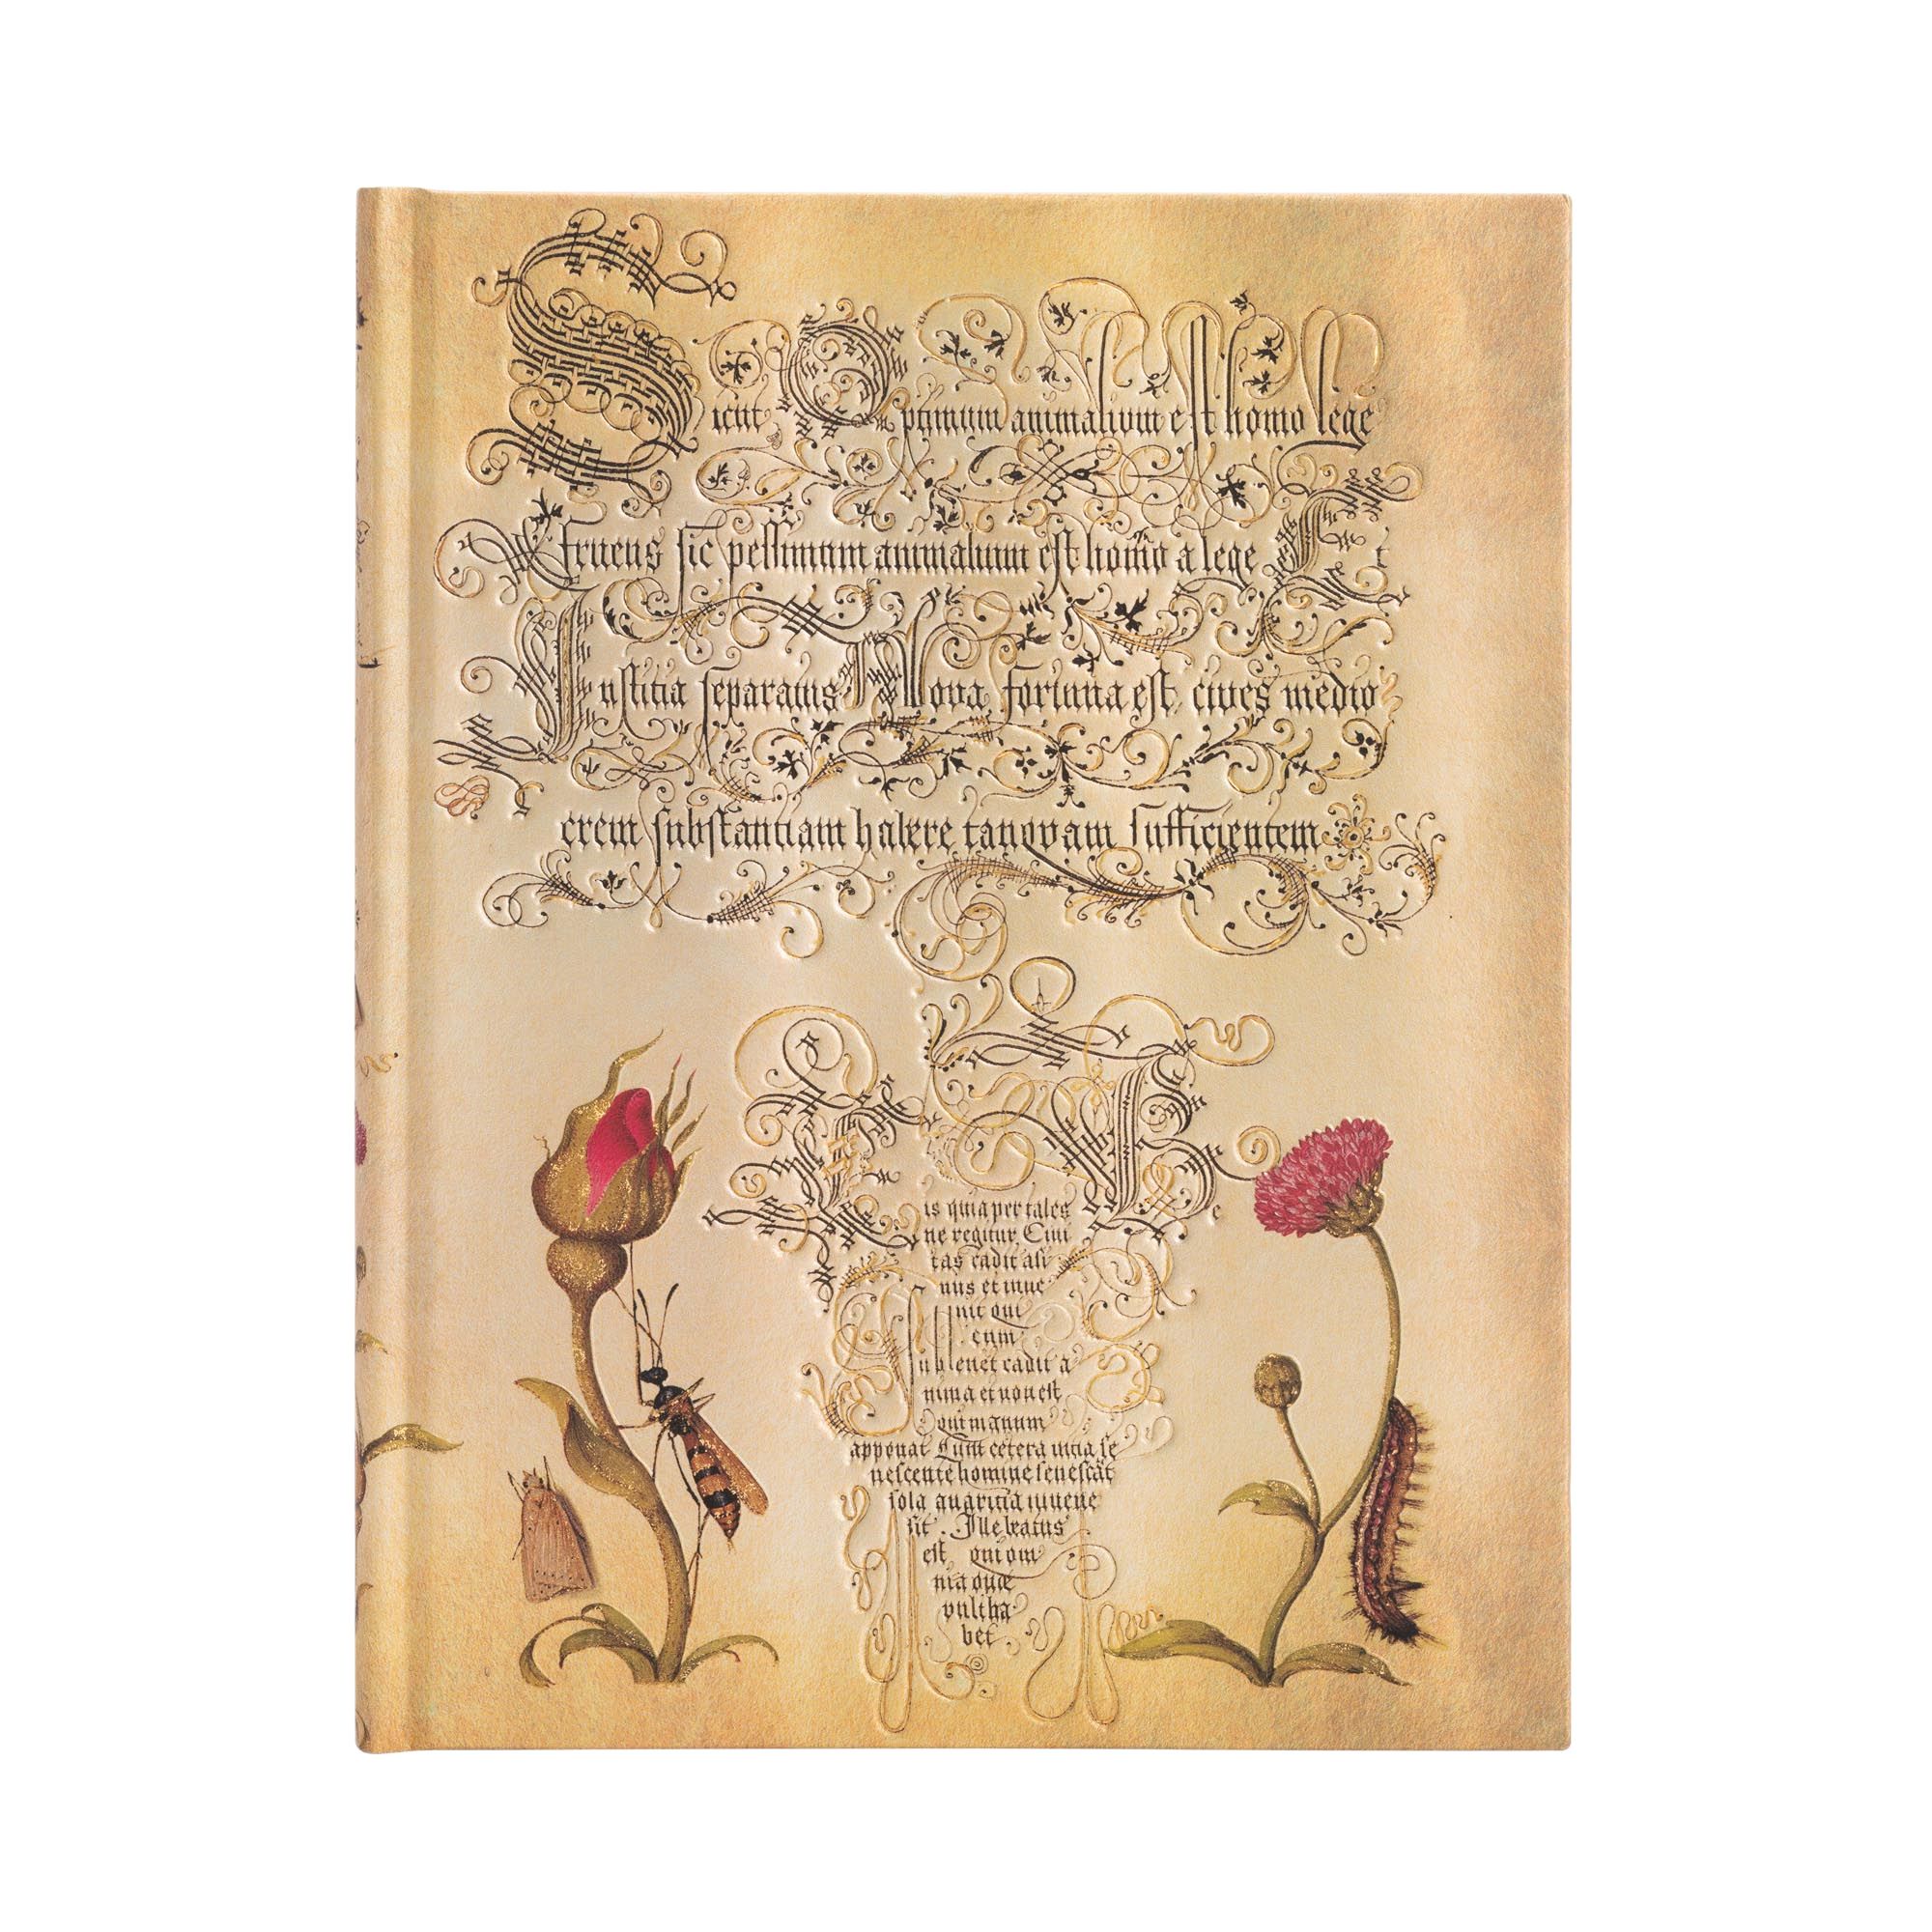 Sicut Optimum animalium est homo lege
fruens sic pessimum animalium est homo a lege Et
Iustitia separatus Nova fortuna est cives medio
crem substantiam habere tanquam sufficientem
is quia per tales
ne regitur, Civi
tas cadit asi
nus et inve
nit qui
eum
sublevet cadit a
nima et non est
qui manum
apponat Cum cetera vitia se
nescente homine senescāt
sola avaritia iuvene
sit . Ille beatus
est qui om
nia quæ
vult ha
bet